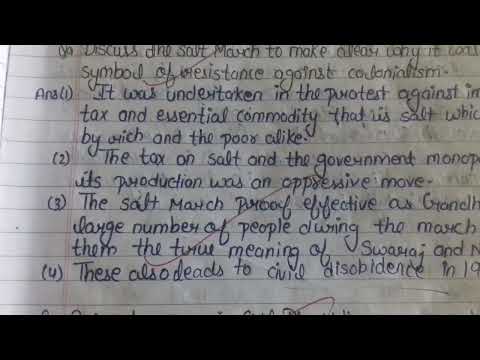 Discuss the Salt March to make clear why it was
symbol of resistance against colonialism.
Ans(1) It was undertaken in the protest against im
tax and essential commodity that is salt whic
by rich and the poor alike.
(2) The tax on salt and the government monopo
its production was an oppressive move.
(3) The salt March proof effective as Gandh
large number of people during the march
them the turue meaning of Swaraj and N
(4) These also deads to civil disobidence in 19